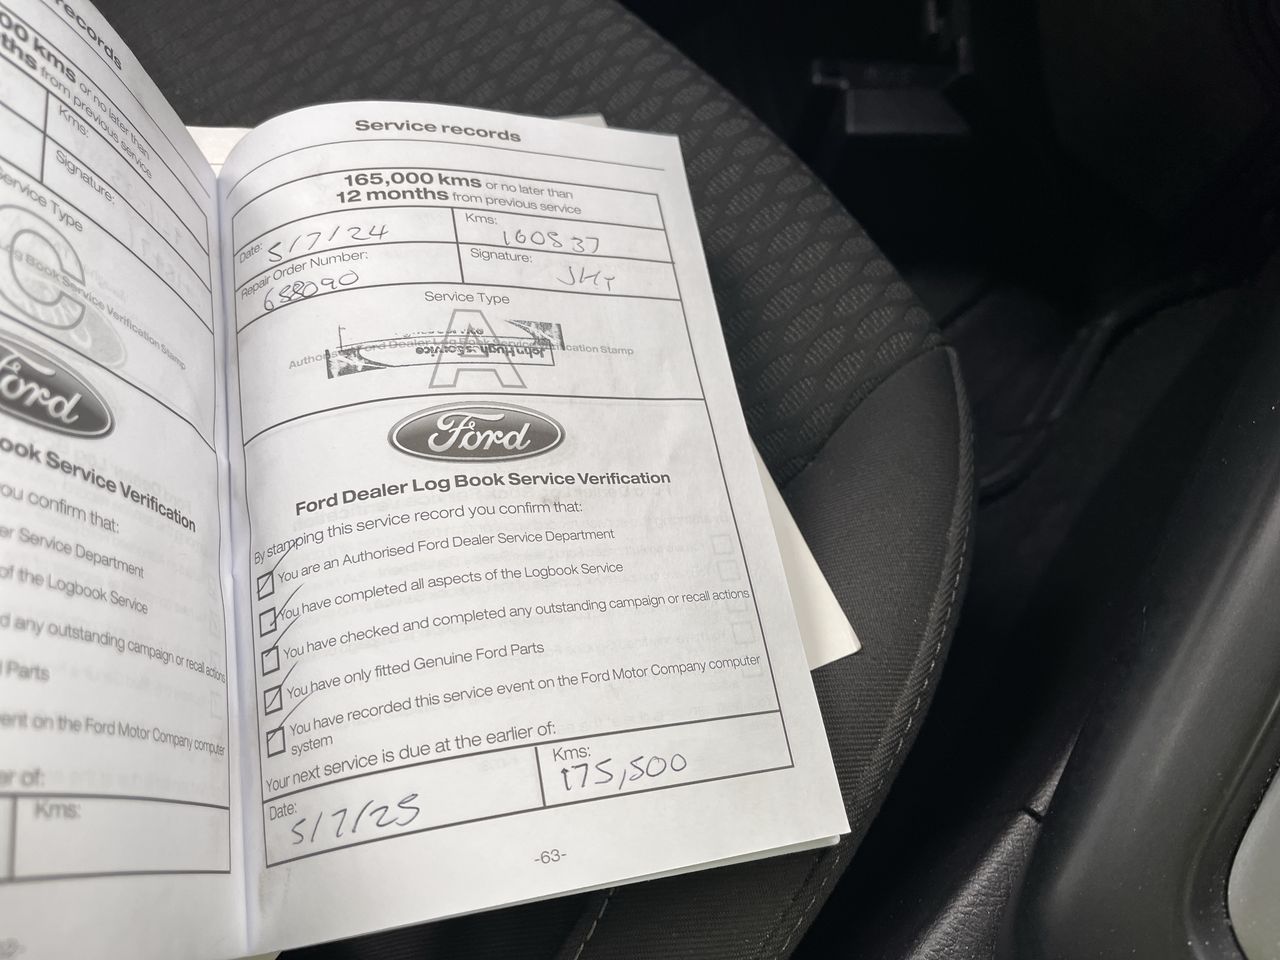 records
00 kms or no later than
ths from previous service
Kms:
Signature:
Service Type
C
Book Service Verification Stamp
Ford
ook Service Verification
ou confirm that:
er Service Department
of the Logbook Service
d any outstanding campaign or recall actions
Parts
ent on the Ford Motor Company computer
er of:
Kms:
Service records
165,000 kms or no later than
12 months from previous service
Date: 5/7/24
Kms: 160837
Repair Order Number: 688090
Signature:
Service Type
A
Authorised Ford Dealer Log Book Service Verification Stamp
Ford
Ford Dealer Log Book Service Verification
By stamping this service record you confirm that:
You are an Authorised Ford Dealer Service Department
You have completed all aspects of the Logbook Service
You have checked and completed any outstanding campaign or recall actions
You have only fitted Genuine Ford Parts
You have recorded this service event on the Ford Motor Company computer
system
Your next service is due at the earlier of:
Date: 5/7/25
Kms: 175,500
-63-